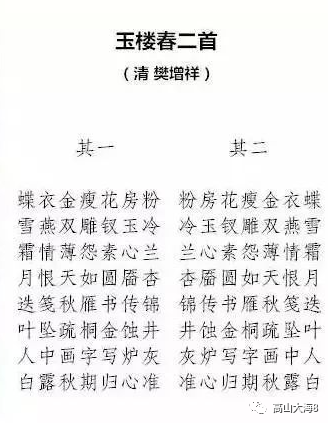 玉楼春二首
（清 樊增祥）
其一
蝶衣金瘦花房粉
雪燕双雕钗玉冷
霜情薄怨素心兰
月恨天如圆靥杏
迭笺秋雁书传锦
叶坠疏桐金蚀井
人中画字写炉灰
白露秋期归心准
其二
粉房花瘦金衣蝶
冷玉钗雕双燕雪
兰心素怨薄情霜
杏靥圆如天恨月
锦传书雁秋笺迭
井蚀金桐疏坠叶
灰炉写字画中人
准心归期秋露白
高山大海8